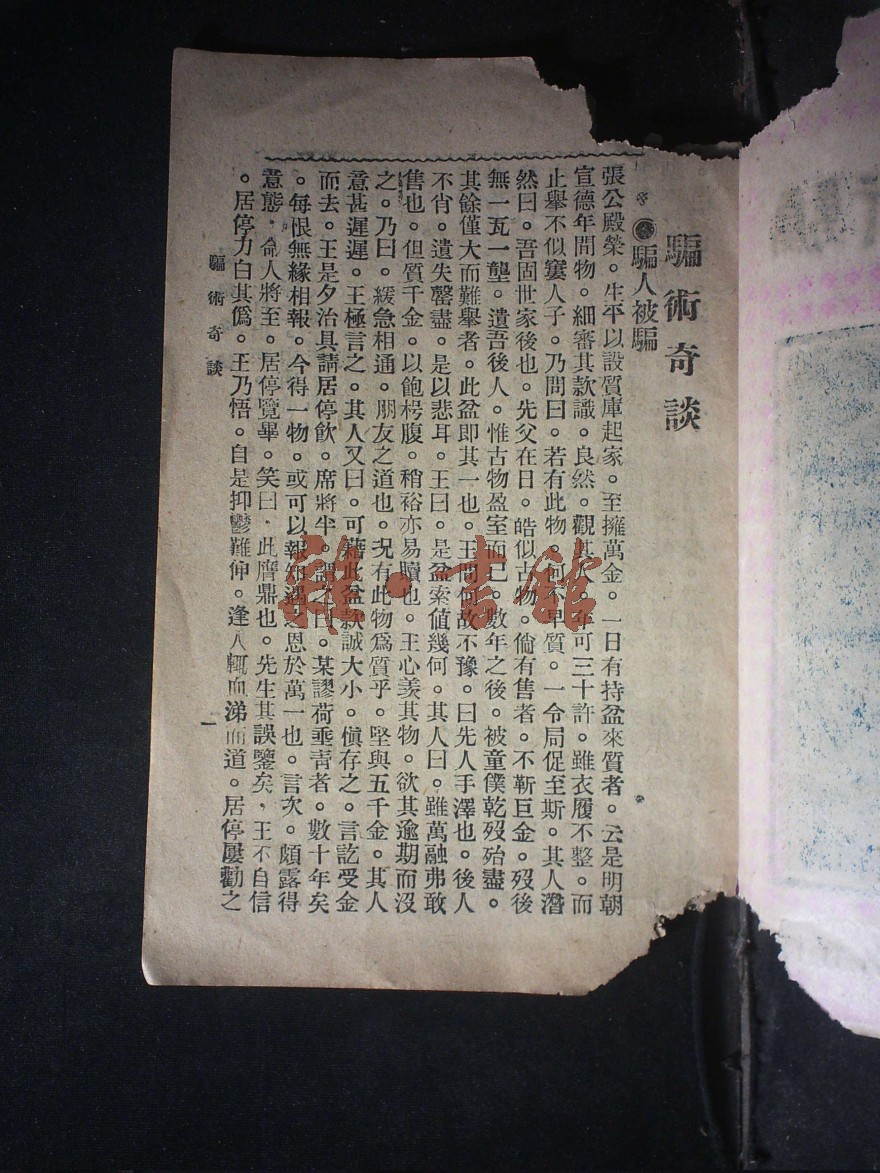 騙術奇談
騙人被騙
張公殿榮。生平以設質庫起家。至擁萬金。一日有持盆來質者。云是明朝
宣德年間物。細審其款識。良然。觀其人。年可三十許。雖衣履不整。而
止舉不似窶人子。乃問曰。若有此物。何不早質。一令局促至斯。其人潛
然曰。吾固世家後也。先父在日。皓似古物。倘有售者。不靳巨金。歿後
無一瓦一壟。遺吾後人。惟古物盈室而已。數年之後。被童僕乾歿殆盡。
其餘僅大而難舉者。此盆即其一也。王問何故不豫。曰先人手澤也。後人
不肖。遺失罄盡。是以悲耳。王曰。是盆索値幾何。其人曰。雖萬融弗敢
售也。但質千金。以飽枵腹。稍裕亦易贖也。王心羨其物。欲其逾期而沒
之。乃曰。緩急相通。朋友之道也。况有此物爲質乎。堅與五千金。其人
意甚遲遲。王極言之。其人又曰。可藉此盆款誠大小。愼存之。言訖受金
而去。王是夕治具請居停飲。席將半。謂之曰。某謬荷垂青者。數十年矣
。每恨無緣相報。今得一物。或可以報知遇之恩於萬一也。言次。頗露得
意態。命人將至。居停覽畢。笑曰，此贋鼎也。先生其誤鑒矣，王不自信
。居停力白其僞。王乃悟。自是抑鬱難伸。逢人輒血涕而道。居停屢勸之
騙術奇談
一
雜·書館